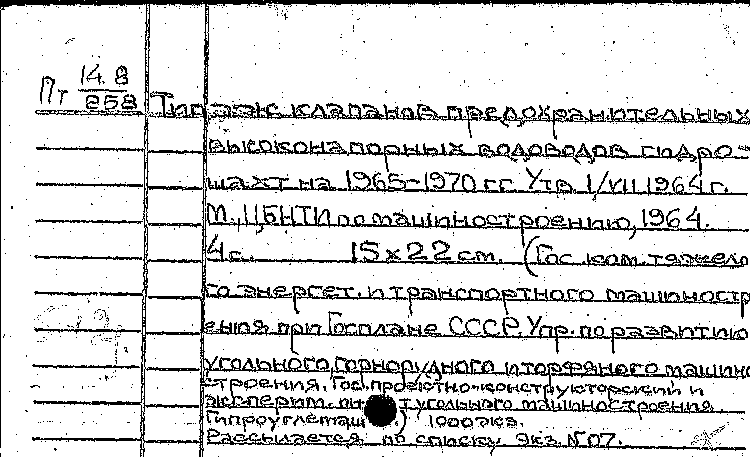 Пт 14.8/258
Типаж клапанов предохранительных
высоконапорных водоводов гидро-
шахт на 1965-1970 гг. Утв. 1/VII 1964 г.
М., ЦБНТИ по машиностроению, 1964.
4 с. 15x22 см. (Гос. ком. тяжело
го энергет. и транспортного машиностр
ения при Госплане СССР. Упр. по развитию
угольного, горнорудного и торфяного машино
строения. Гос. проектно-конструкторский и
эксперим. ин т угольного машиностроения.
Гипроуглемаш.) 1000 экз.
Рассылается по списку. Экз. N 07.